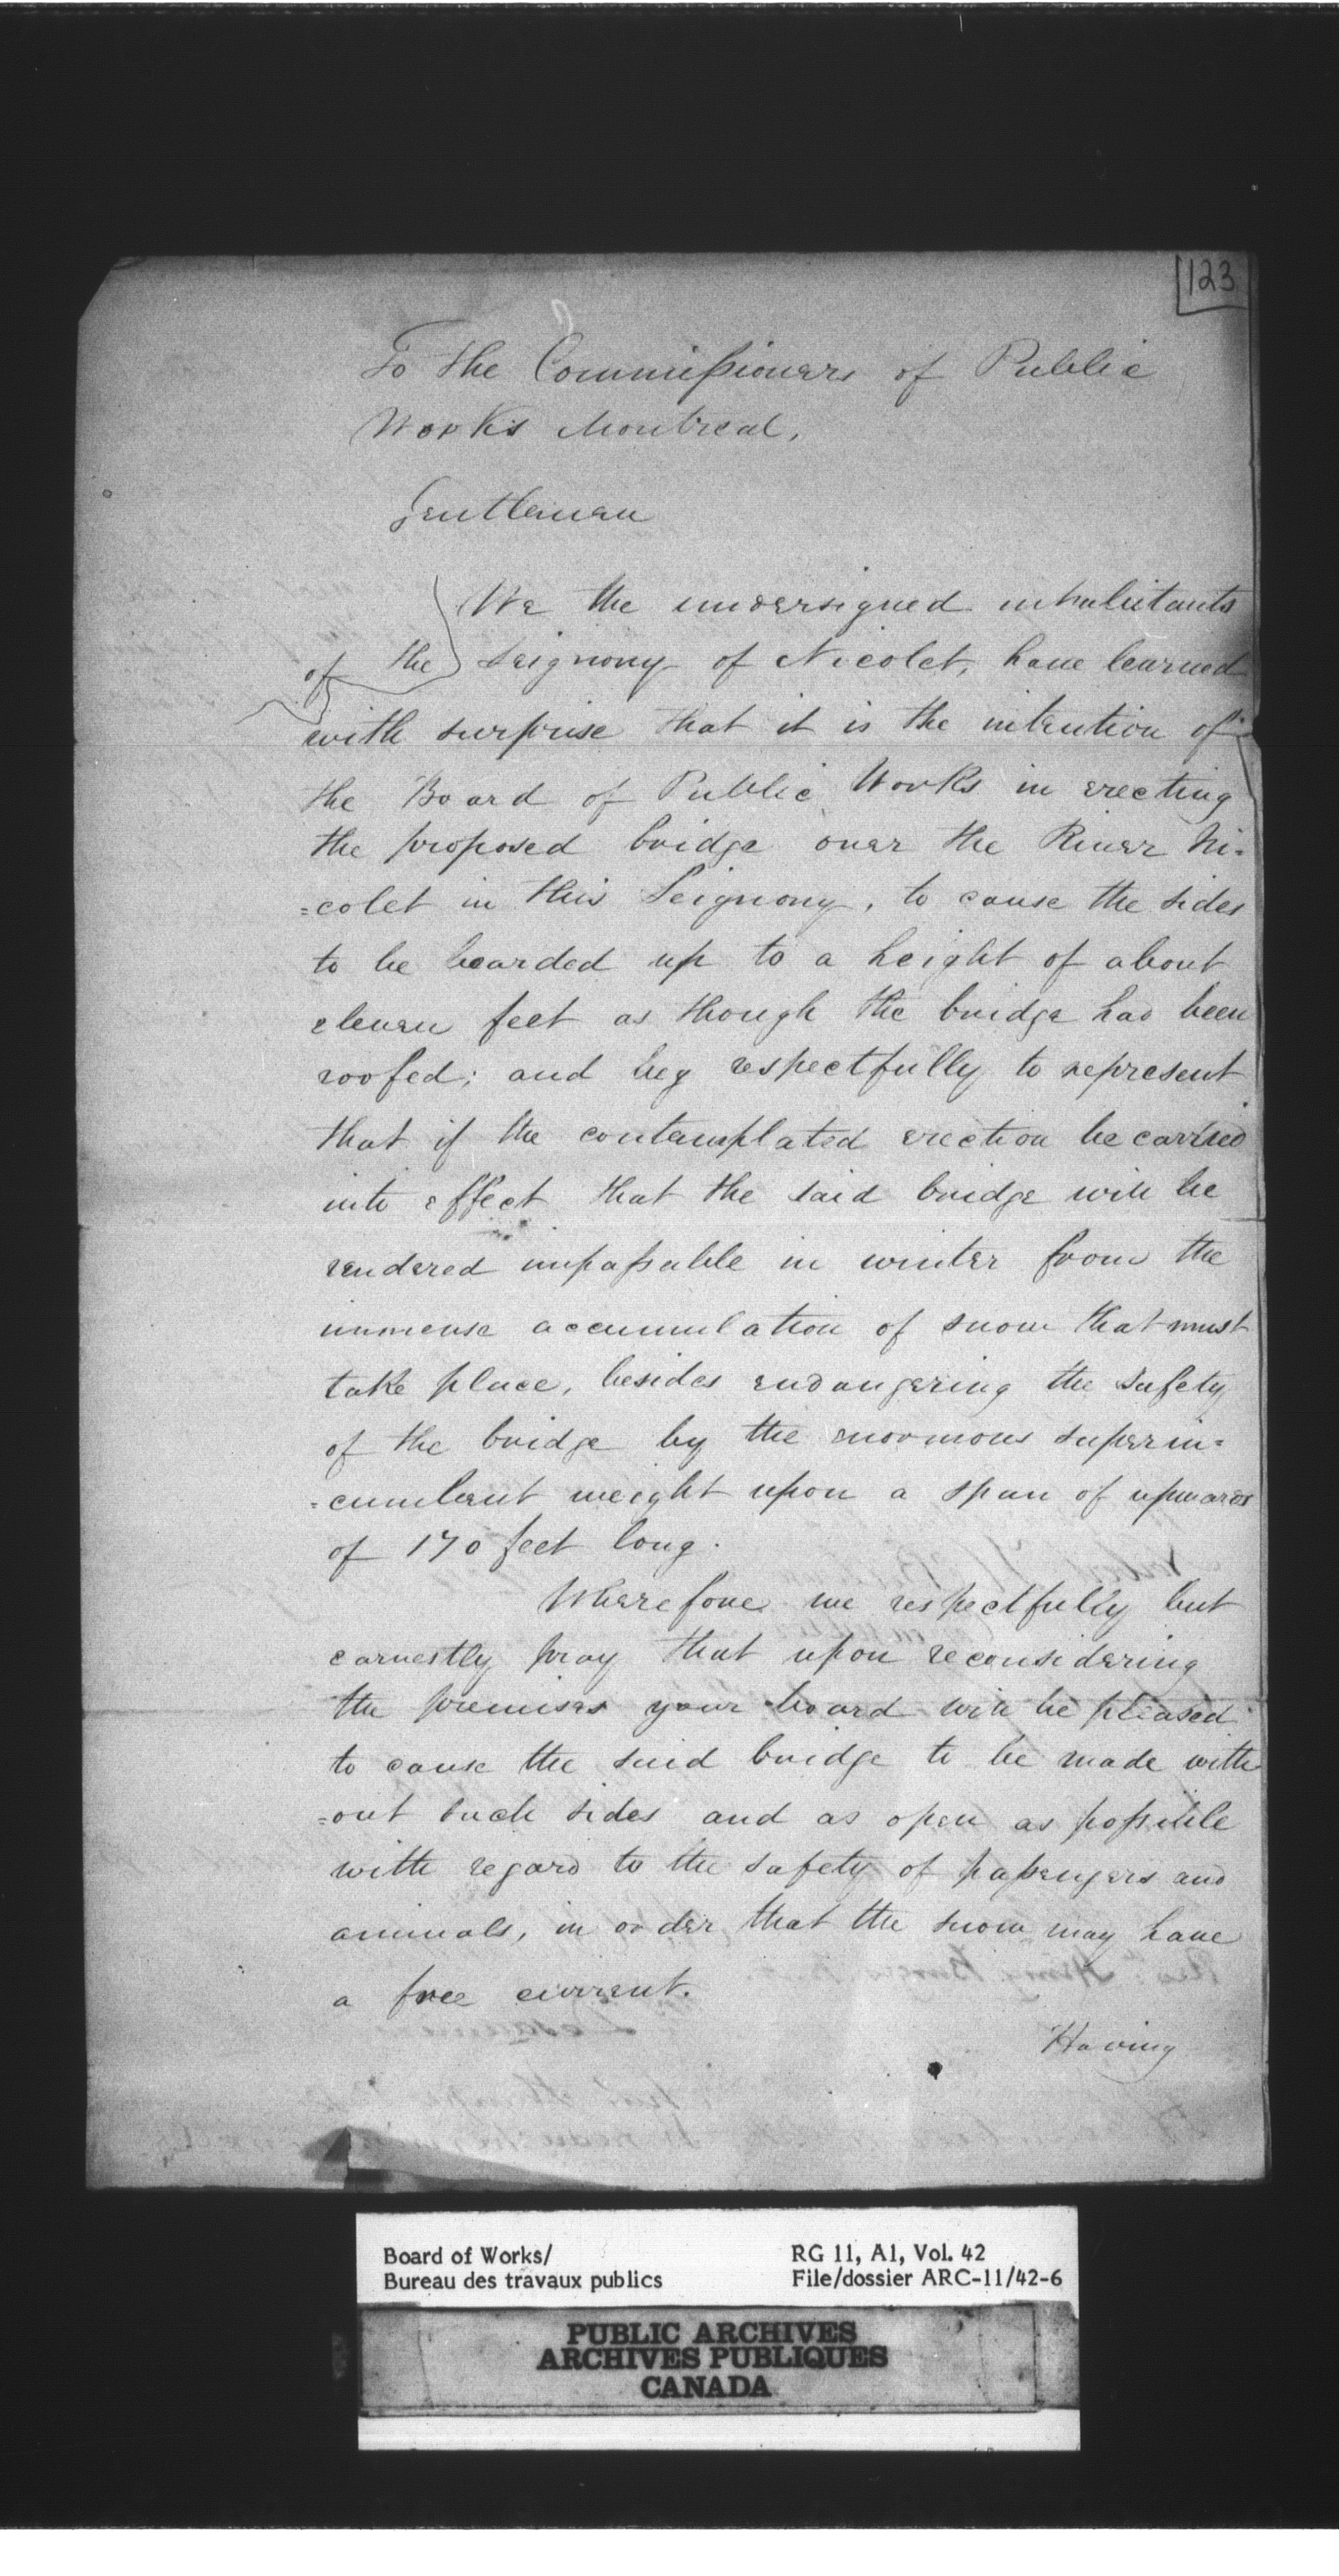 123
To the Commissioners of Public
Works Montreal,
Gentlemen
We the undersigned inhabitants
of the Seignory of Nicolet, have learned
with surprise that it is the intention of
the Board of Public Works in erecting
the proposed bridge over the River Ni-
=colet in this Seignory, to cause the sides
to be boarded up to a height of about
eleven feet as though the bridge had been
roofed; and beg respectfully to represent
that if the contemplated erection be carried
into effect that the said bridge will be
rendered impassable in winter from the
immense accumulation of snow that must
take place, besides endangering the safety
of the bridge by the enormous superin-
=cumbent weight upon a span of upwards
of 170 feet long.
Wherefore we respectfully but
earnestly pray that upon reconsidering
the premises your board will be pleased
to cause the said bridge to be made with
=out such sides and as open as possible
with regard to the safety of passengers and
animals, in order that the snow may have
a free current.
Having
Board of Works/
Bureau des travaux publics
RG 11, A1, Vol. 42
File/dossier ARC-11/42-6
PUBLIC ARCHIVES
ARCHIVES PUBLIQUES
CANADA